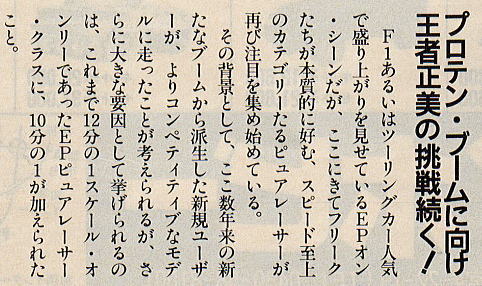 プロテン・ブームに向け
王者正美の挑戦続く!
F1あるいはツーリングカー人気
で盛り上がりを見せているEPオン
・シーンだが、ここにきてフリーク
たちが本質的に好む、スピード至上
のカテゴリーたるピュアレーサーが
再び注目を集め始めている。
その背景として、ここ数年来の新
たなブームから派生した新規ユーザ
ーが、よりコンペティティブなモデ
ルに走ったことが考えられるが、さ
らに大きな要因として挙げられるの
は、これまで12分の1スケール・オ
ンリーであったEPピュアレーサー
・クラスに、10分の1が加えられた
こと。